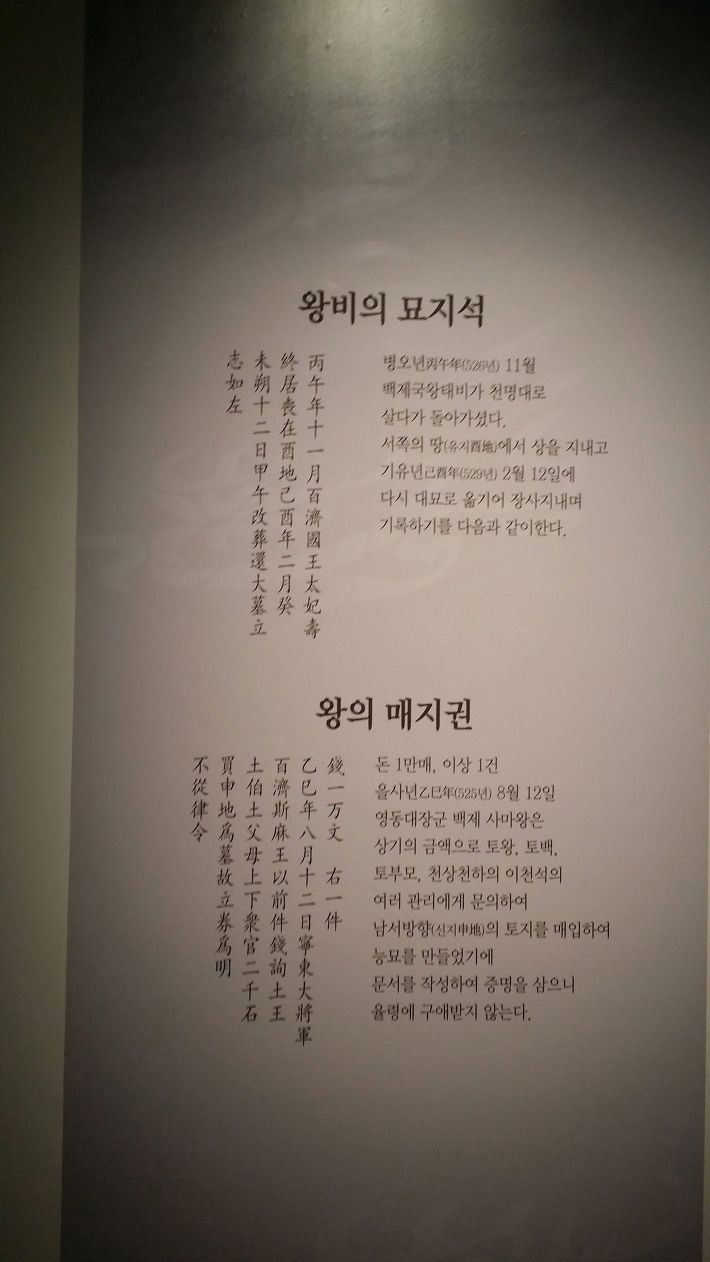 왕비의 묘지석
丙午年十一月百濟國王太妃壽
終居喪在酉地己酉年二月癸
未朔十二日甲午改葬還大墓立
志如左
병오년丙午年(526년) 11월
백제국왕태비가 천명대로
살다가 돌아가셨다.
서쪽의 땅(유지酉地)에서 상을 지내고
기유년己酉年(529년) 2월 12일에
다시 대묘로 옮기어 장사지내며
기록하기를 다음과 같이한다.
왕의 매지권
錢一万文 右一件
乙巳年八月十二日寧東大將軍
百濟斯麻王以前件錢詢土王
土伯土父母上下衆官二千石
買申地爲墓故立券爲明
不從律令
돈 1만매, 이상 1건
을사년乙巳年(525년) 8월 12일
영동대장군 백제 사마왕은
상기의 금액으로 토왕, 토백,
토부모, 천상천하의 이천석의
여러 관리에게 문의하여
남서방향(신지申地)의 토지를 매입하여
능묘를 만들었기에
문서를 작성하여 증명을 삼으니
율령에 구애받지 않는다.